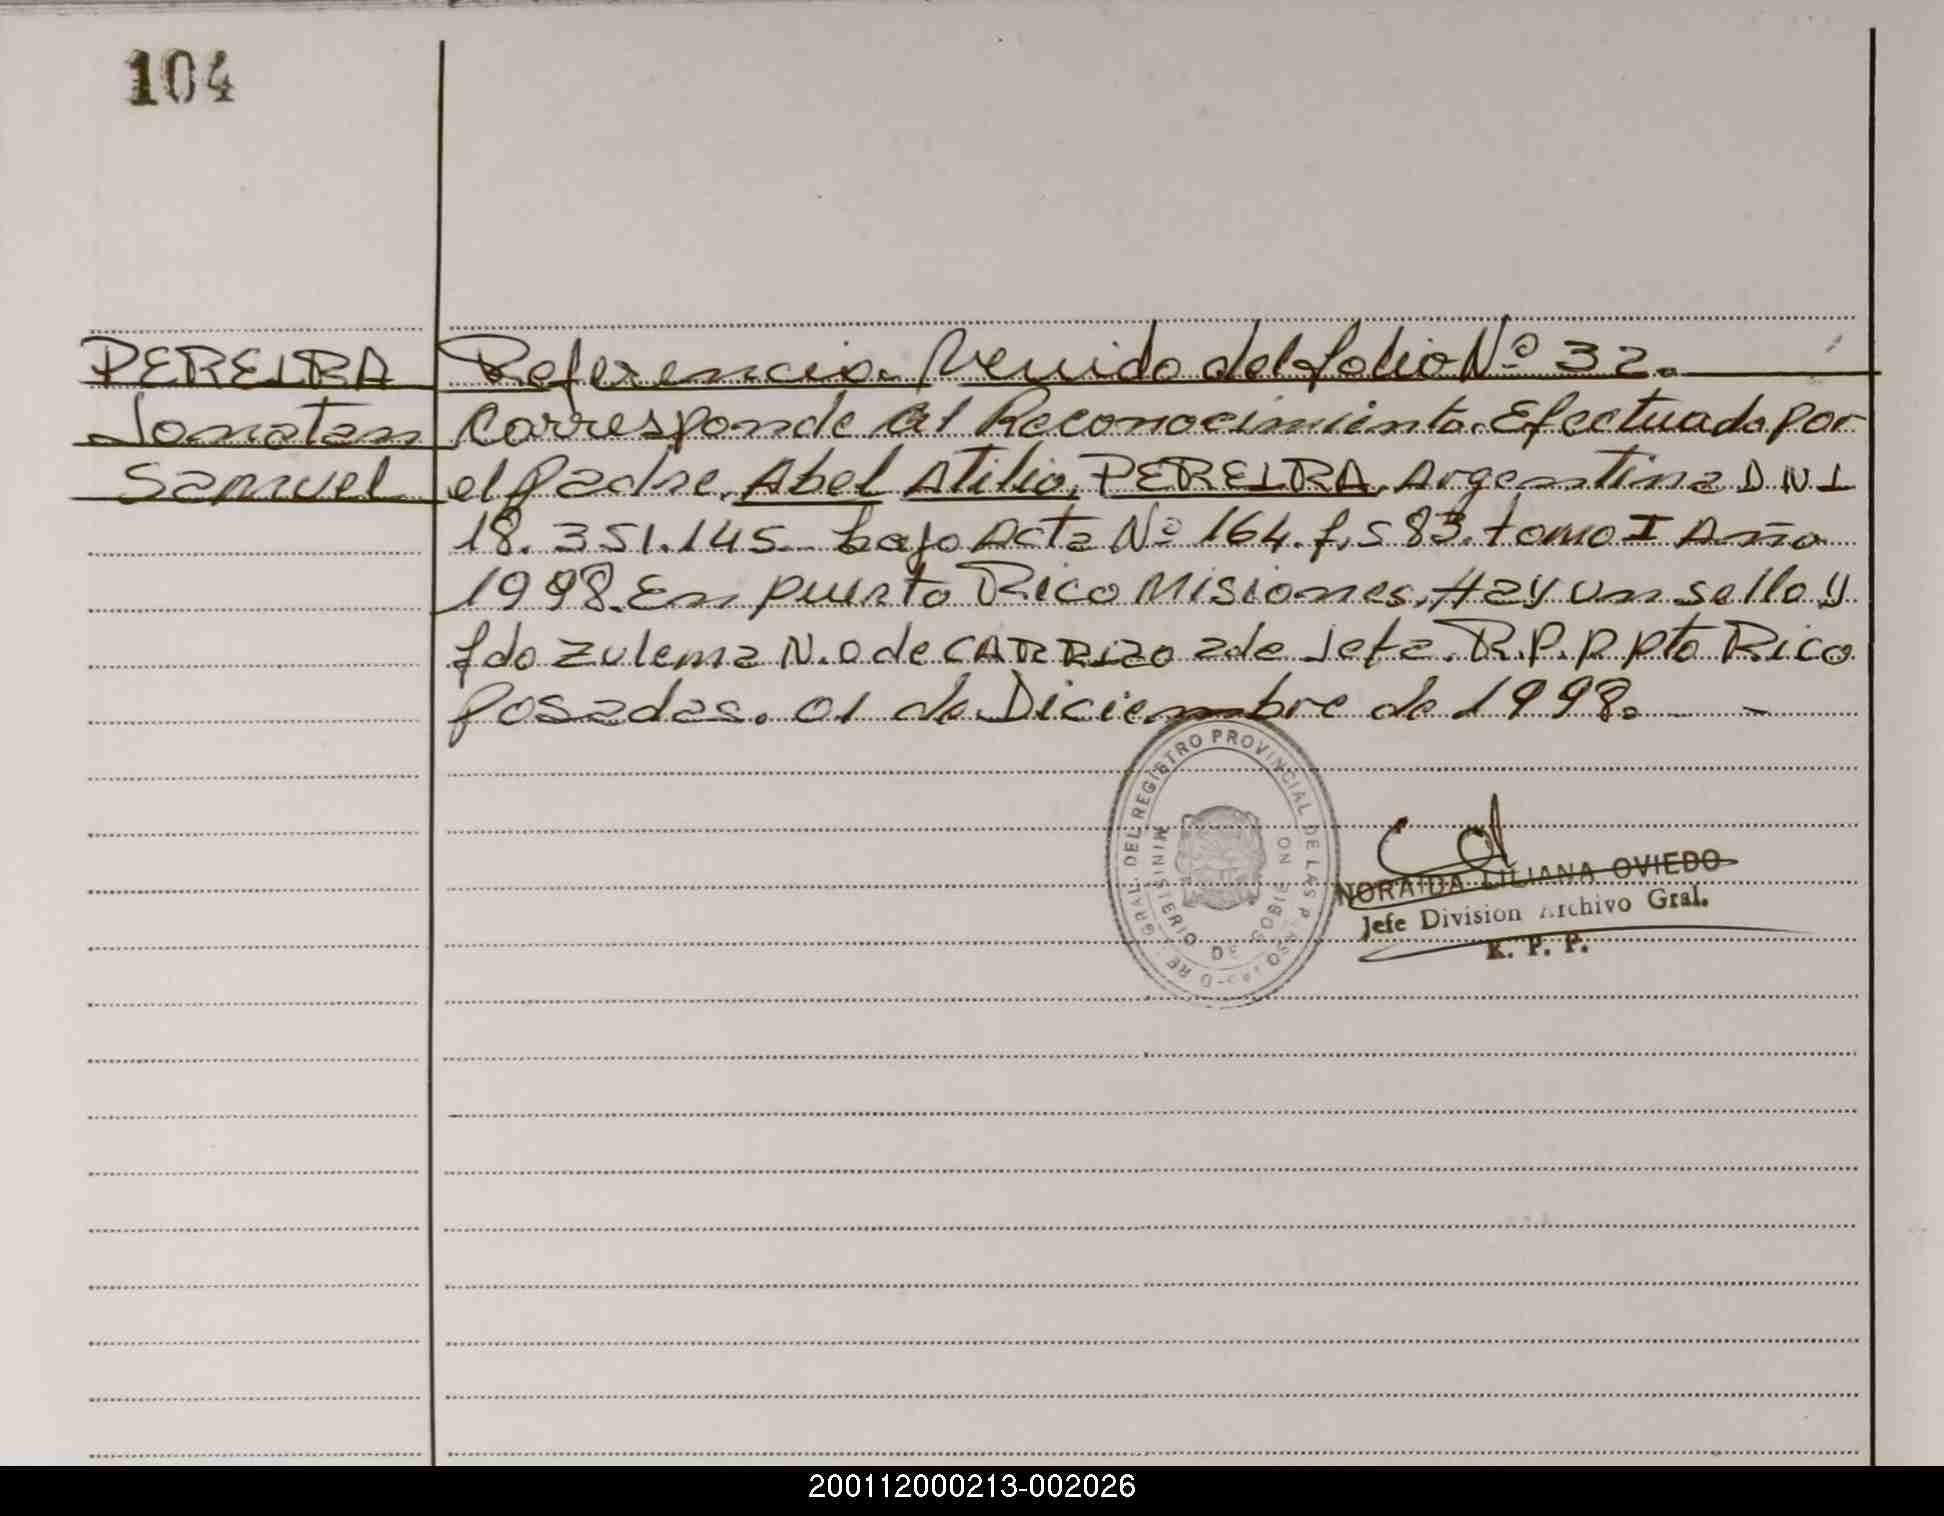 104
PEREIRA
Jonatan
Samuel
Referencia. Venido del folio Nº 32.
Corresponde al Reconocimiento. Efectuado por
el padre. Abel Atilio, PEREIRA, Argentina D N I
18.351.145 bajo Acta Nº 164. f,s 83. tomo I Año
1998. En puerto Rico Misiones. Hay un sello y
fdo Zulema N. O de CARRIZO 2da Jefa. R.P.P pto Rico
Posadas. 01 de Diciembre de 1998. - -
GRAL. DEL REGISTRO PROVINCIAL DE LAS
MINISTERIO DE GOBIE NO
NORAIDA LILIANA OVIEDO
Jefe Division Archivo Gral.
R. P. P.
200112000213-002026